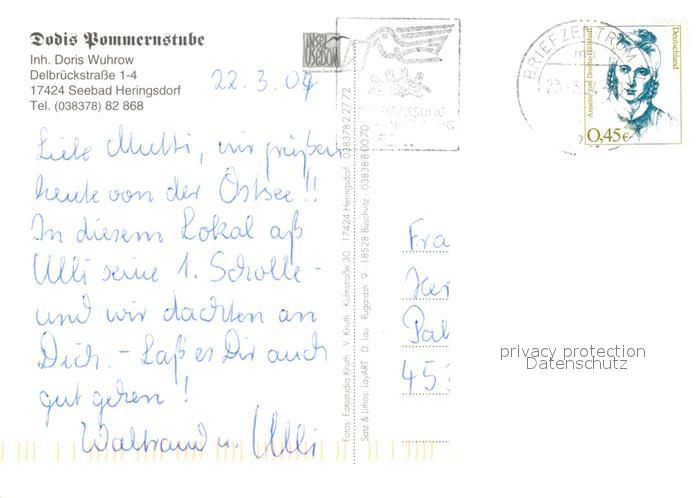 Dodis Pommernstube
Inh. Doris Wuhrow
Delbrückstraße 1-4
17424 Seebad Heringsdorf
Tel. (038378) 82 868
22.3.04
Liebe Mutti, wir grüßen
heute von der Ostsee!!
In diesem Lokal aß
Ulli seine 1. Scholle -
und wir dachten an
Dich. - Laß es Dir auch
gut gehen!
Waltraud u. Ulli
Fotos: Fotostudio Knuth V. Knuth Kulmstraße 30 17424 Heringsdorf 038378 22772
Satz & Lithos: LayART D. Lau Rugardstr. 9 18528 Buschvitz 03838 80070
INSEL USEDOM
BRIEFZENTRUM
Deutschland
0,45€
Fra
Pal
45
privacy protection
Datenschutz